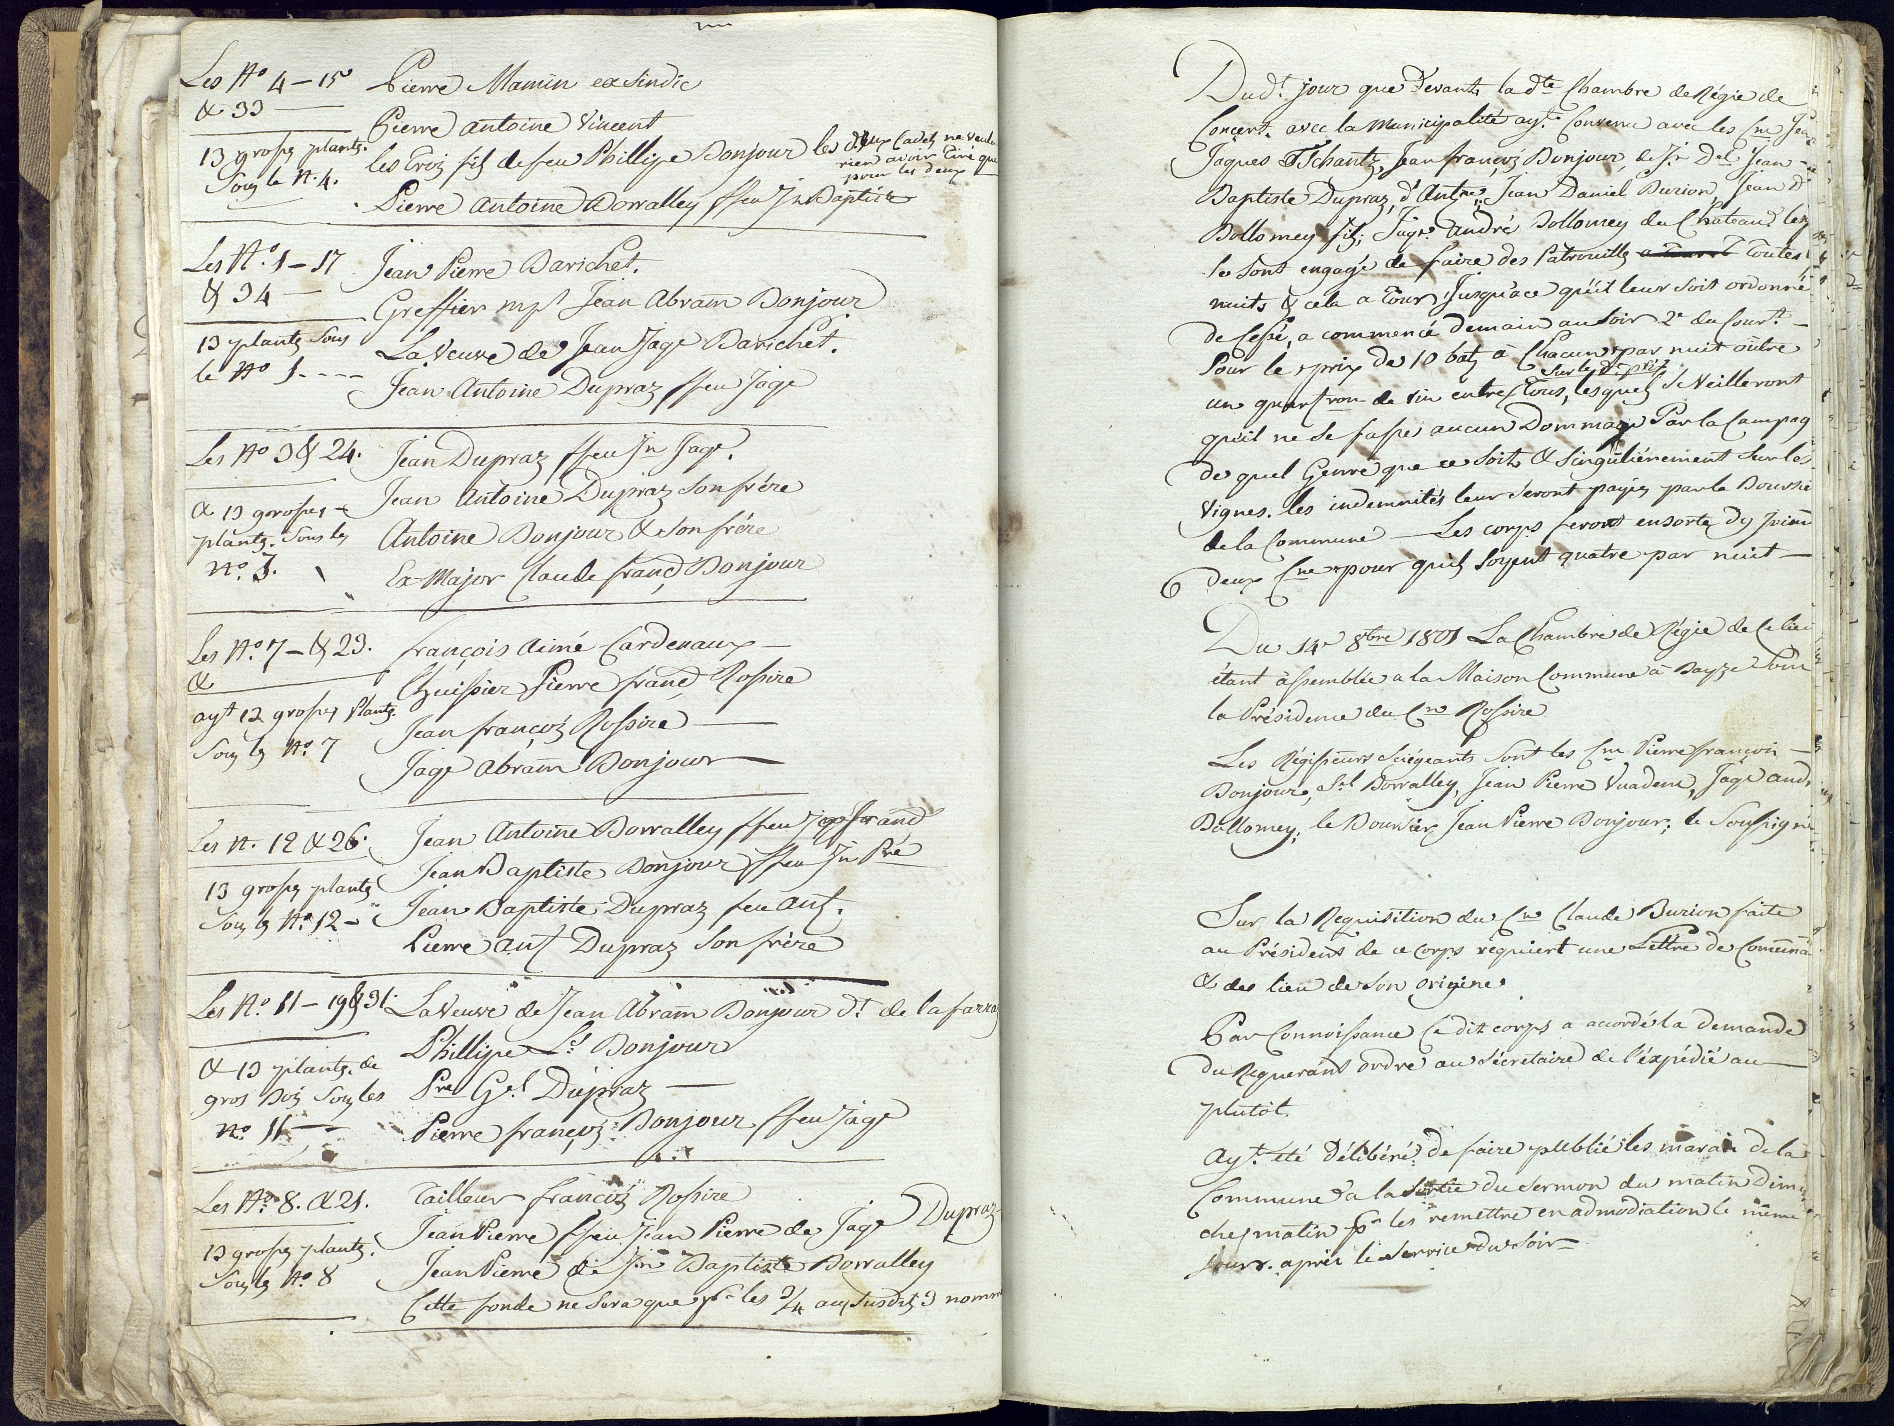 Les No 4 – 15
& 33
13 grosses plantes.
Sous le N. 4.
Pierre Mamin ex Sindic
Pierre Antoine Vincent
les trois fils de feu Phillipe Bonjour les deux Cadets ne veule
rien avoir tiré que
pour les deux
Pierre Antoine Dorvalley ffeu Jn Baptiste
Les No. 1 – 17
& 34 –
13 plantes Sous
le No 1 - - - -
Jean Pierre Barichet.
Greffier mpl Jean Abram Bonjour
La Veuve de Jean Jaqe Barichet.
Jean Antoine Dupraz ffeu Jaqe
Les No 3 & 24.
& 13 grosses –
plantes. Sous les
no. 3.
Jean Dupraz ffeu Jn Jaqe.
Jean Antoine Dupraz son frère
Antoine Bonjour & Son frère
Ex-Major Claude francs Bonjour
Les No. 7 – & 23.
&
ayt 12 grosses Plantes.
Sous le No. 7
françois Aimé Cardenaux –
L'huissier Pierre francs Rossire
Jean françois Rossire –
Jaqe Abram Bonjour –
Les N. 12 & 26.
13 grosses plantes
Sous le No. 12 –
Jean Antoine Dorvalley ffeu
Jean Baptiste Bonjour ffeu Jn Pre
Jean Baptiste Dupraz feu Ant.
Pierre Ant Dupraz Son frère
Les No. 11 – 19 & 31.
& 13 plantes. de
gros bois Sous les
no. 11 –
La Veuve de Jean Abram Bonjour dt. de la farra
Phillipe Ls Bonjour
Pre Gel Dupraz –
Pierre françois Bonjour ffeu Jaqe
Les No. 8. & 21.
13 grosses plantes.
Sous le No. 8
Tailleur françois Rossire
Jean Pierre ffeu Jean Pierre de Jaqe Dupraz
Jean Pierre de Jn Baptiste Dorvalley
Cette sonde ne sera que pr les 3/4 aux susdits 3 nomm
Dudt. jour que devant, la dte Chambre de Régie de
Concert avec la Municipalité ayt. Convenu avec les Cne Jean
Jaques Tschantz, Jean françois Bonjour, de Jn Del Jean –
Baptiste Dupraz, d'Antne, Jean Daniel Burion, Jean D
Dollomey fils, Jaqe. André Dollomey du Chateau. les
Se sont engagé de faire des Patrouilles toutes
nuits & cela a tour, Jusqu'ace qu'il leur soit ordonné
de Cessé, a commencé demain au Soir 2e du Court. –
Pour le prix de 10 batz à Chacun par nuit outre
un quartron de vin entre tous, lesquels se veilleront
qu'il ne se fasse aucun Dommage Par la Campag
de quel Genre que ce soit & Singulièrement sur les
vignes. les indemnités leur seront payés par le Boursie
de la Commune – Les corps feront ensorte dy Joind
deux Cne pour qu'ils soyent quatre par nuit –
Du 14e 8bre 1801 La Chambre de Régie de Ce lieu
étant assemblée a la Maison Commune à Bayze Sous
la Présidence du Cne Rossire
Les Régisseurs Sciégeants Sont les Cne Pierre françois –
Bonjour, Sl Dorvalley, Jean Pierre Vuadens, Jaqe And
Dollomey, le Boursier Jean Pierre Bonjour; le Soussigné
Sur la Requisition du Cne Claude Burion faite
au Président de ce Corps requiert une Lettre de Communa
& des lieu de Son origine.
Par Connoissance Ce dit corps a accordé la demande
du Requerant ordre au Sécretaire de l'éxpédié au
plutôt.
Ayt. été Délibéré de faire publié les marais de la
Commune a la Sortie du Sermon du matin Diman
che matin pr les remettre en admodiation le même
Jour. après le Service du Soir –